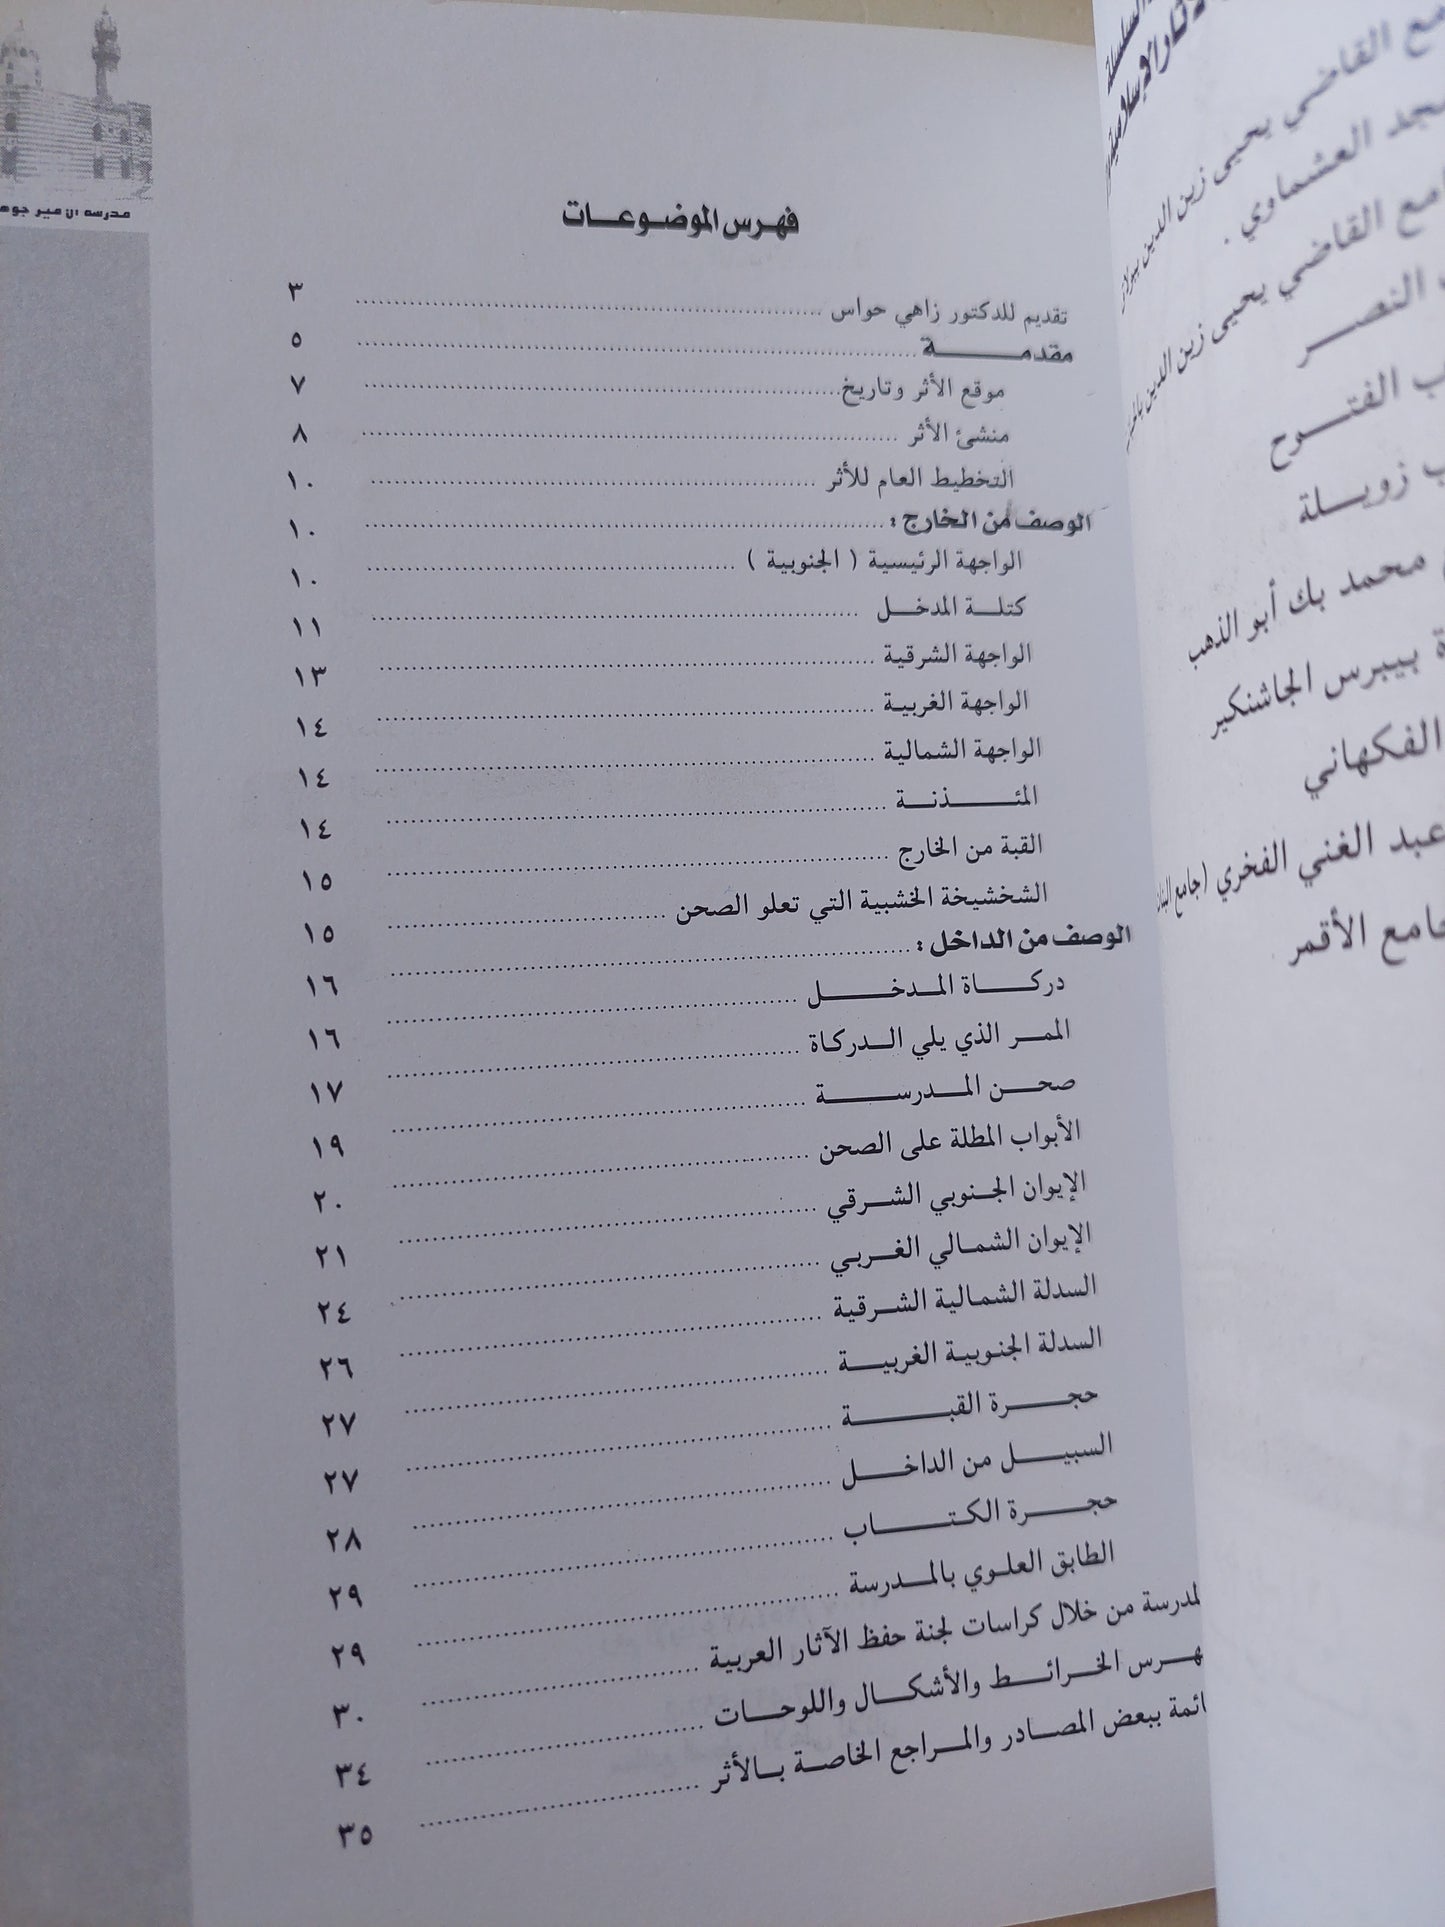 فهرس الموضوعات
تقديم للدكتور زاهي حواس ........ ٣
مقدمة ........ ٥
موقع الأثر وتاريخ ........ ٧
منشئ الأثر ........ ٨
التخطيط العام للأثر ........ ١٠
الوصف من الخارج : ........ ١٠
الواجهة الرئيسية ( الجنوبية ) ........ ١٠
كتلة المدخل ........ ١١
الواجهة الشرقية ........ ١٣
الواجهة الغربية ........ ١٤
الواجهة الشمالية ........ ١٤
المئذنة ........ ١٤
القبة من الخارج ........ ١٥
الشخشيخة الخشبية التي تعلو الصحن ........ ١٥
الوصف من الداخل : ........ ١٦
دركاة المدخل ........ ١٦
الممر الذي يلي الدركاة ........ ١٧
صحن المدرسة ........ ١٩
الأبواب المطلة على الصحن ........ ٢٠
الإيوان الجنوبي الشرقي ........ ٢١
الإيوان الشمالي الغربي ........ ٢٤
السدلة الشمالية الشرقية ........ ٢٦
السدلة الجنوبية الغربية ........ ٢٧
حجرة القبة ........ ٢٧
السبيل من الداخل ........ ٢٨
حجرة الكتاب ........ ٢٩
الطابق العلوي بالمدرسة ........ ٢٩
لمدرسة من خلال كراسات لجنة حفظ الآثار العربية ........ ٣٠
هرس الخرائط والأشكال واللوحات ........ ٣٤
ائمة ببعض المصادر والمراجع الخاصة بالأثر ........ ٣٥
مدرسة الأمير جوه
السلسلة
الإسلامية
مع القاضي يحيى زين الدين
جد العشماوي .
امع القاضي يحيى زين الدين
النصر
ب الفتوح
ب زويلة
محمد بك أبو الذهب
ة بيبرس الجاشنكير
الفكهاني
عبد الغني الفخري (جامع البنات
جامع الأقمر